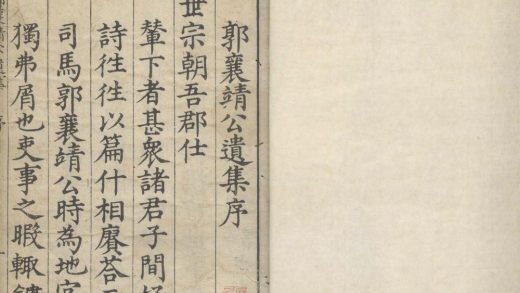 郭襄靖公遺集序
世宗朝吾郡仕
輦下者甚衆諸君子間
詩往往以篇什相賡荅
司馬郭襄靖公時為地官
獨弗屑也吏事之暇輙